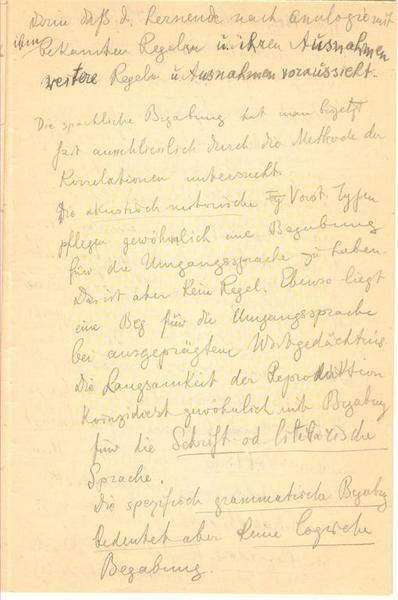 Darin daß d. Lernende nach Analogie mit
ihm bekannten Regeln u. ihren Ausnahmen
weitere Regeln u Ausnahmen voraussieht.
Die sprachliche Begabung hat man bis jetzt
fast ausschliesslich durch die Methode der
Korrelationen untersucht.
Die akustisch motorische Vorst Typen
pflegen gewöhnlich eine Begabung
für die Umgangssprache zu haben.
Das ist aber kein Regel. Ebenso liegt
eine Beg für die Umgangssprache
bei ausgeprägtem Wortgedächtnis
Die Langsamkeit der Reproduktion
koinzidiert gewöhnlich mit Begabung
für die Schrift od literarische
Sprache.
Die spezifisch grammatische Begabg
bedeutet aber keine logische
Begabung.